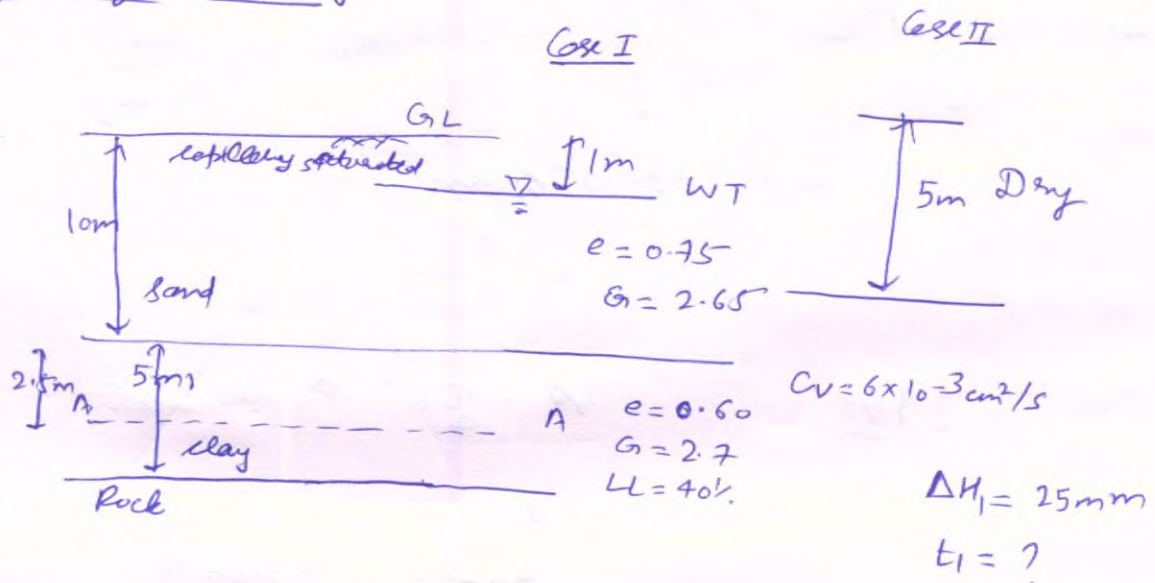 Case I
Case II
GL
capillary saturated
1m
WT
10m
5m Dry
e = 0.75
G = 2.65
sand
2.5m
5m
A
A
clay
e = 0.60
G = 2.7
LL = 40%
Cv = 6x10-3 cm2/s
Rock
ΔH1 = 25mm
t1 = ?